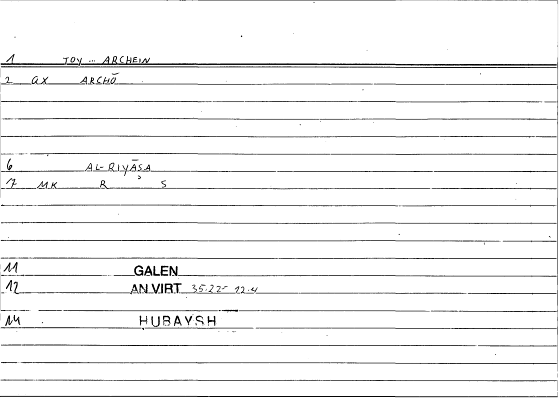 1 TOY ... ARCHEIN
2 GX ARCHŌ
6 AL-RIYĀSA
7 MK R ʾ S
11 GALEN
12 AN VIRT 35.22-
14 HUBAYSH